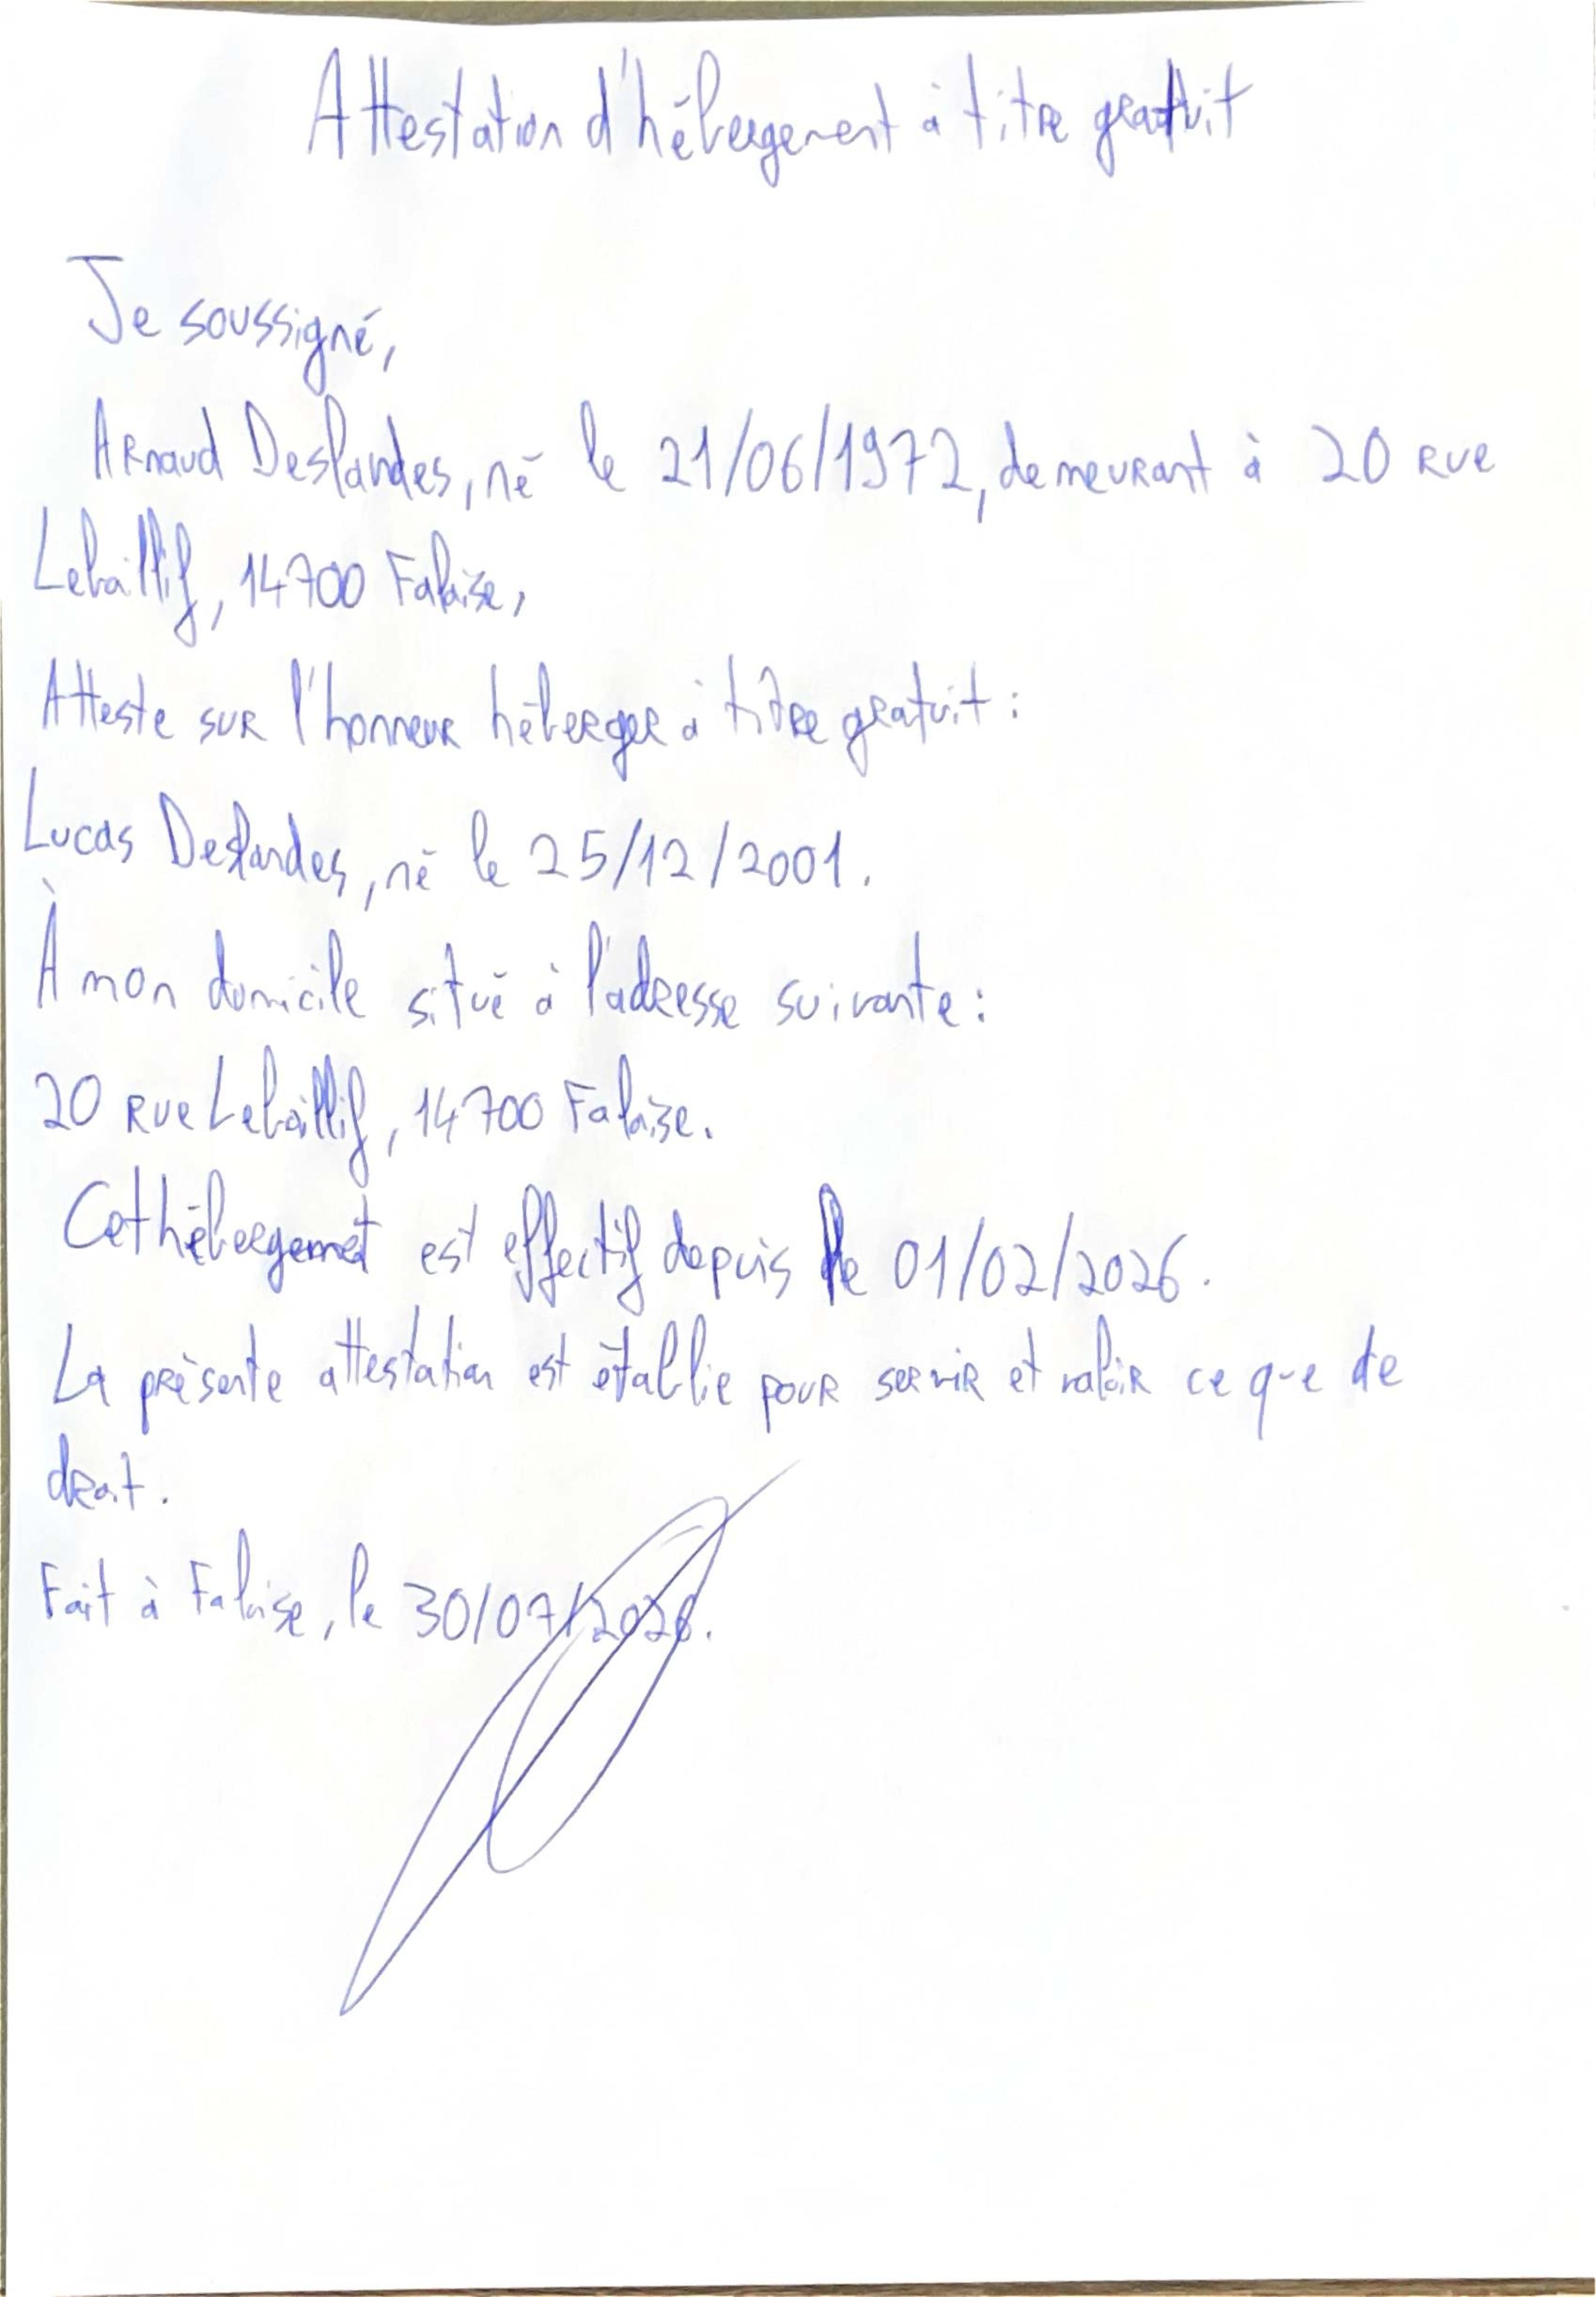 Attestation d'hébergement à titre gratuit
Je soussigné,
Arnaud Deslandes, né le 21/06/1972, demeurant à 20 rue
Lebaillif, 14700 Falaise,
Atteste sur l'honneur héberger à titre gratuit :
Lucas Deslandes, né le 25/12/2001.
À mon domicile situé à l'adresse suivante :
20 rue Lebaillif, 14700 Falaise.
Cet hébergemet est effectif depuis le 01/02/2026.
La présente attestation est établie pour servir et valoir ce que de
droit.
Fait à Falaise, le 30/07/2026.